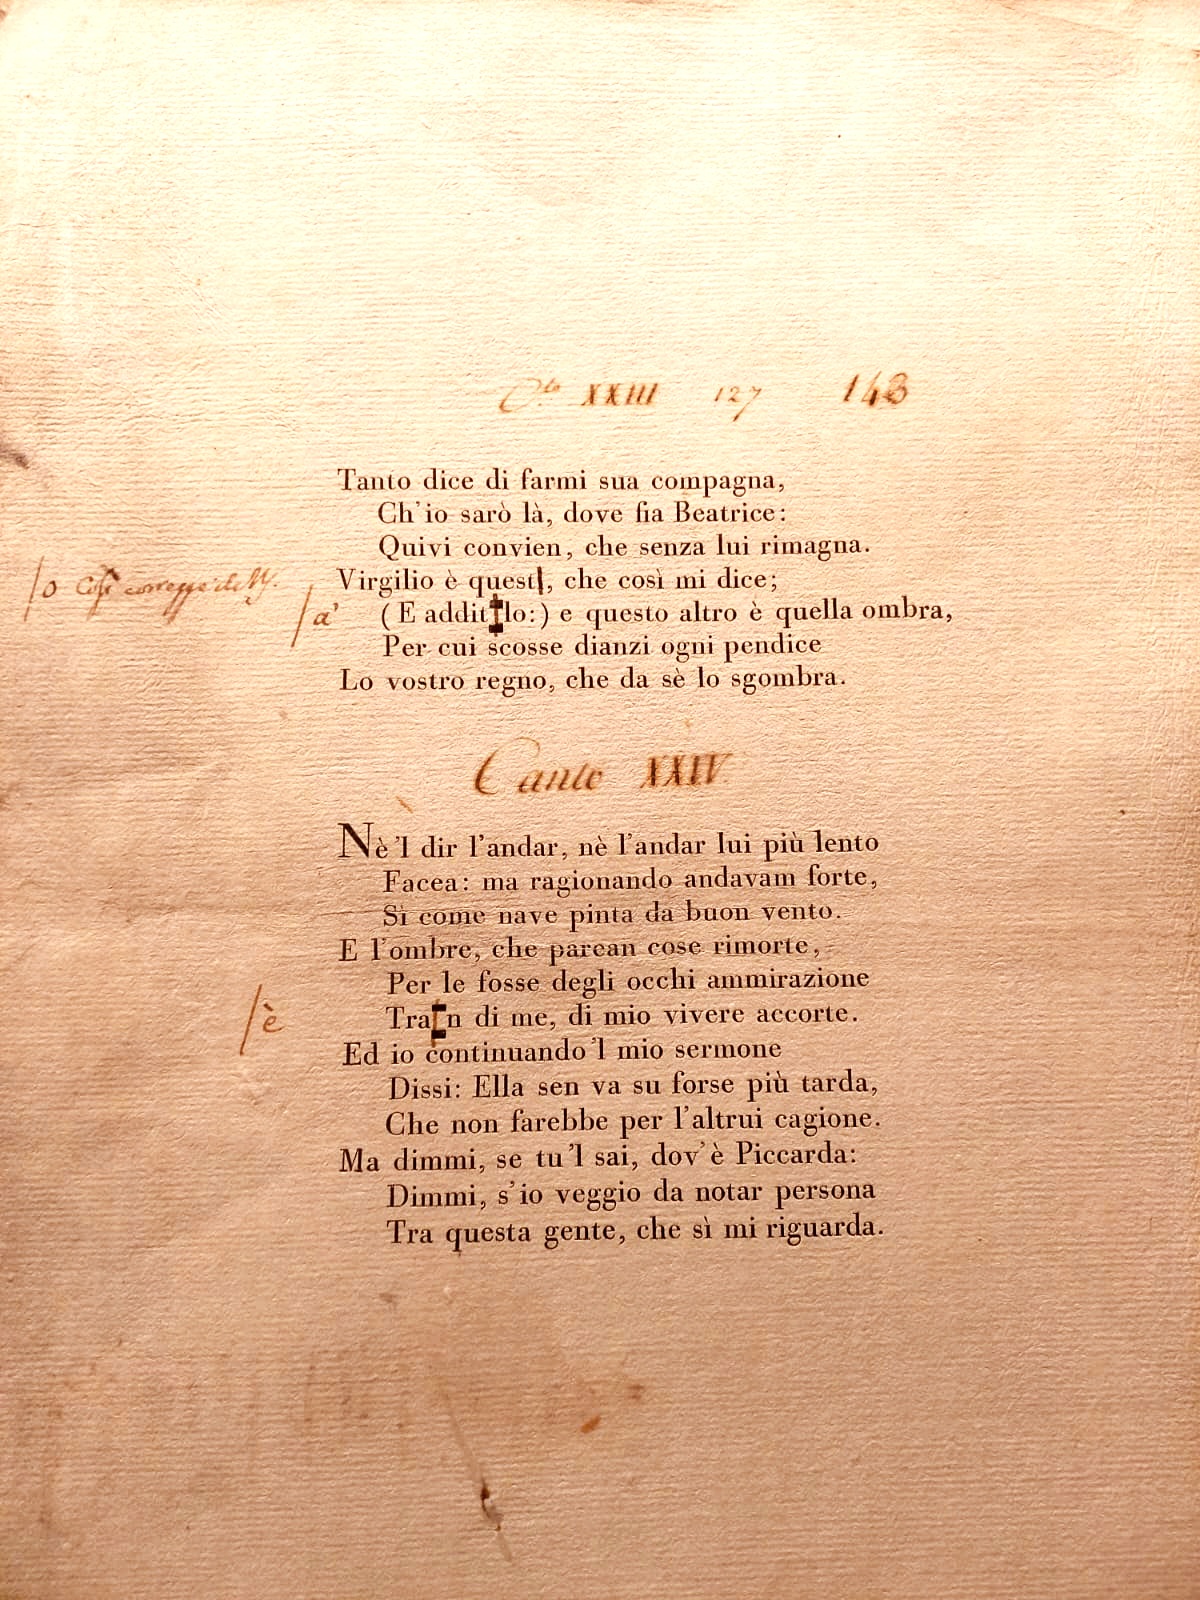 C.to XXIII 127 143
Tanto dice di farmi sua compagna,
Ch'io sarò là, dove fia Beatrice:
Quivi convien, che senza lui rimagna.
/o Così corregge il
Virgilio è quest, che così mi dice;
/a'
(E addit lo:) e questo altro è quella ombra,
Per cui scosse dianzi ogni pendice
Lo vostro regno, che da sè lo sgombra.
Canto XXIV
Nè 'l dir l'andar, nè l'andar lui più lento
Facea: ma ragionando andavam forte,
Sì come nave pinta da buon vento.
E l'ombre, che parean cose rimorte,
Per le fosse degli occhi ammirazione
/è
Tra n di me, di mio vivere accorte.
Ed io continuando 'l mio sermone
Dissi: Ella sen va su forse più tarda,
Che non farebbe per l'altrui cagione.
Ma dimmi, se tu 'l sai, dov'è Piccarda:
Dimmi, s'io veggio da notar persona
Tra questa gente, che sì mi riguarda.